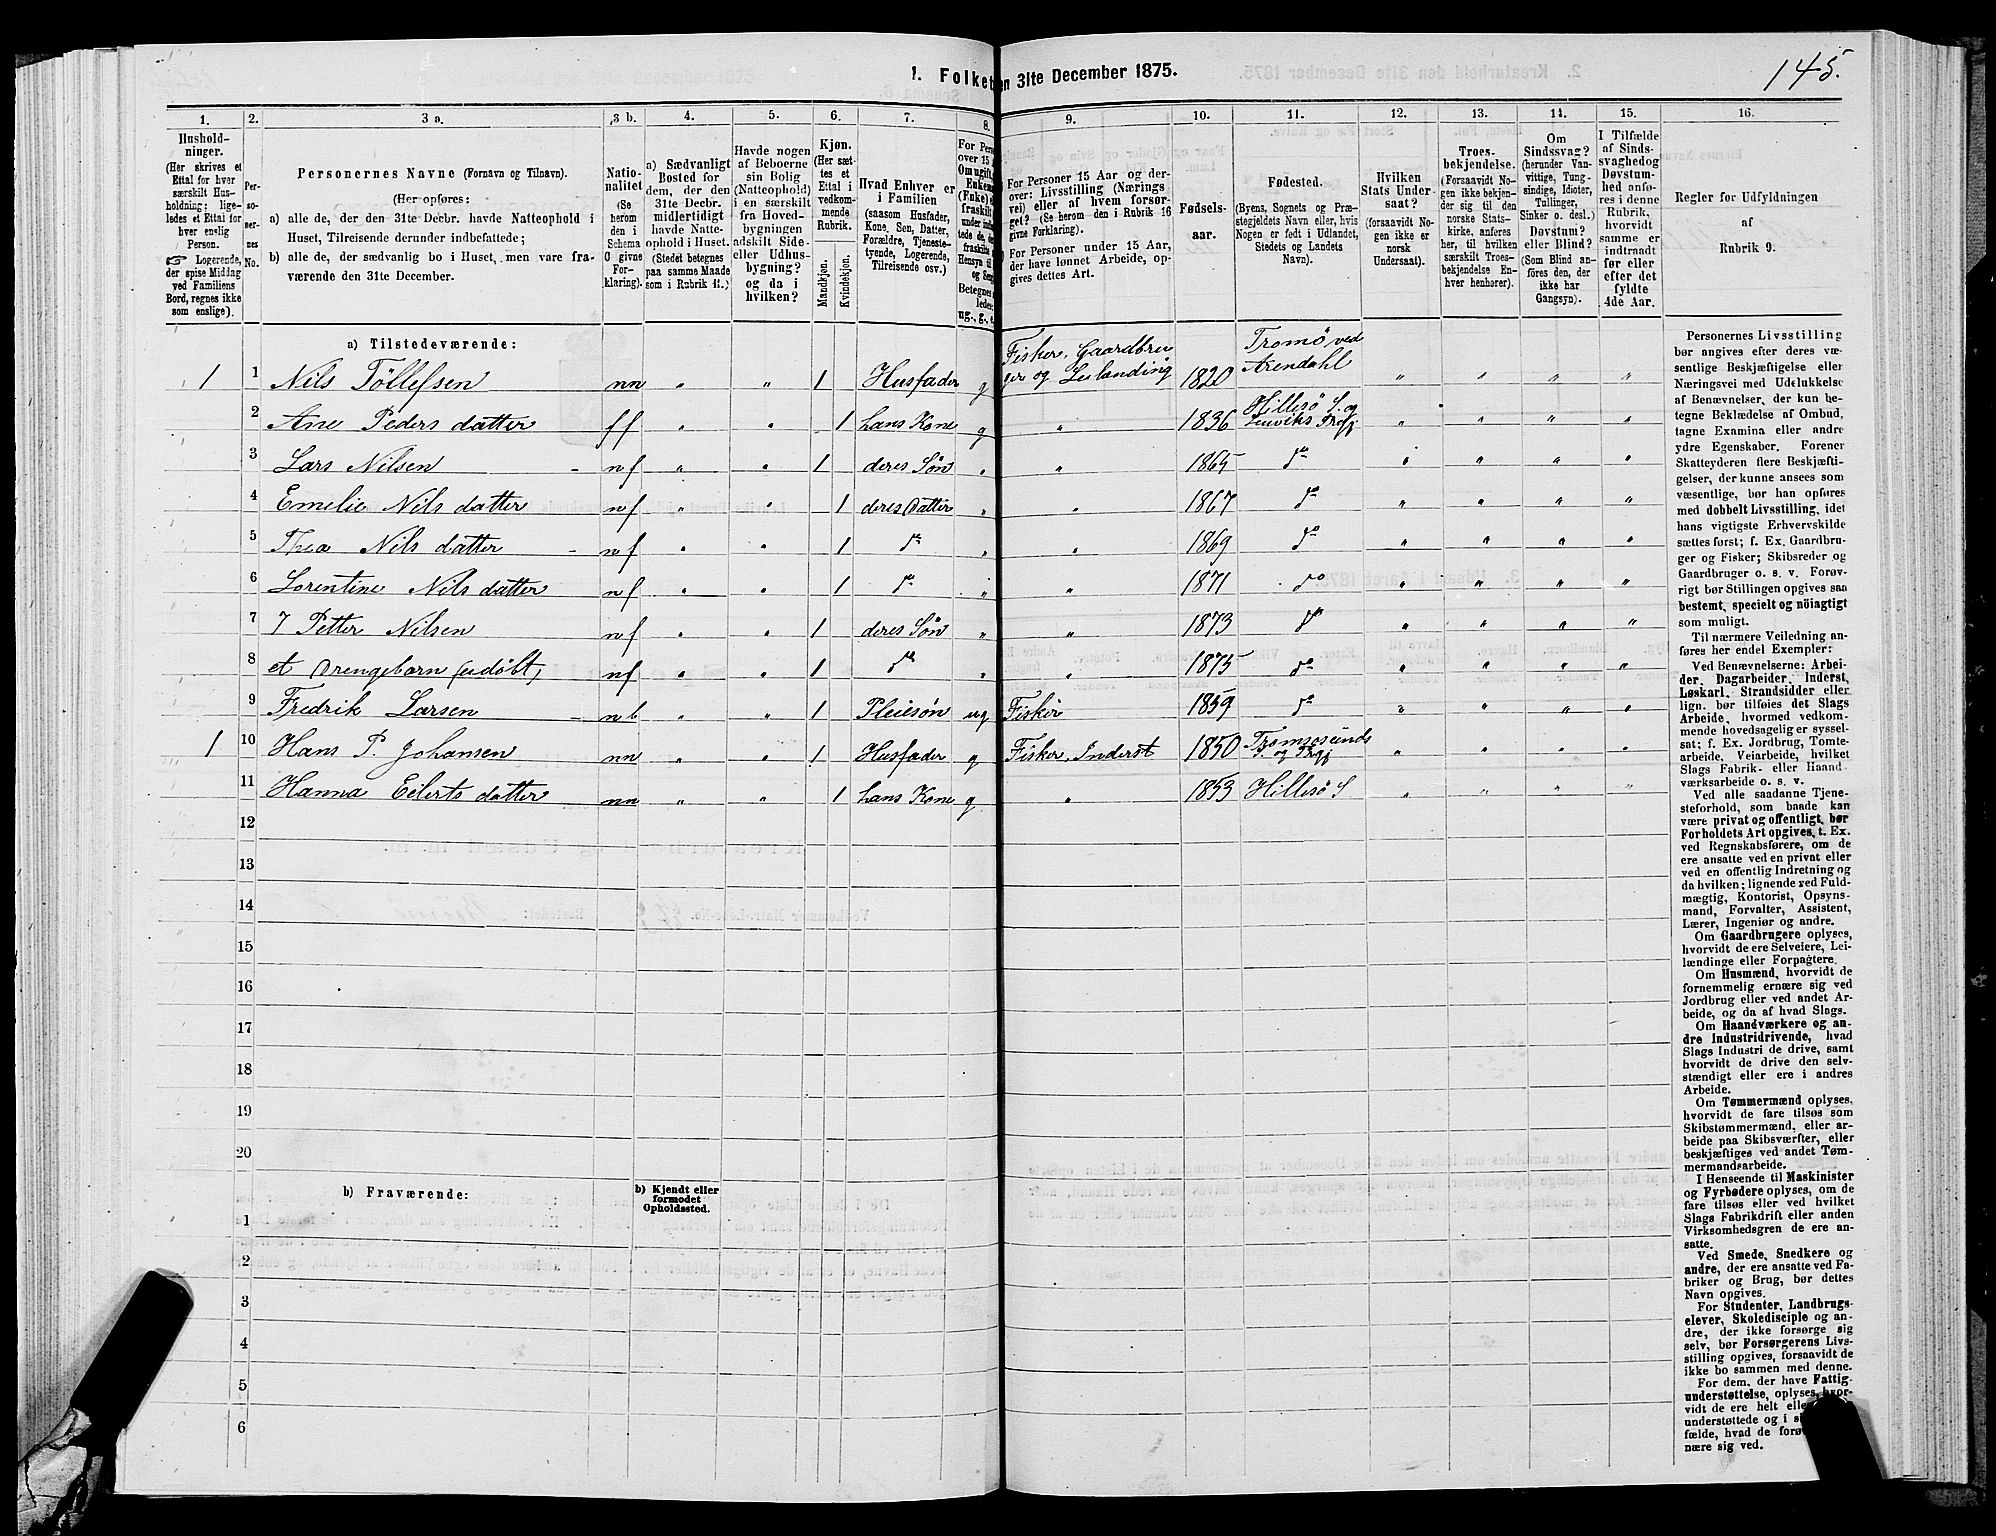 1. Folket en 31te December 1875.
145.
1.
Hushold-
ninger.
(Her skrives et
Ettal for hver
særskilt Hus-
holdning; lige-
ledes et Ettal for
hver enslig
Person.
☞ Logerende,
der spise Middag
ved Familiens
Bord, regnes ikke
som enslige).
2.
Per-
so-
ner-
nes
No.
3 a.
Personernes Navne (Fornavn og Tilnavn).
(Her opføres:
a) alle de, der den 31te Decbr. havde Natteophold i
Huset, Tilreisende derunder indbefattede;
b) alle de, der sædvanlig bo i Huset, men vare fra-
værende den 31te December.
3 b.
Natio-
nalitet
(Se
herom
den i
Schema
C givne
For-
klaring).
4.
a) Sædvanligt
Bosted for
dem, der den
31te Decbr.
midlertidigt
havde Natte-
ophold i Huset.
(Stedet betegnes
paa samme Maade
som i Rubrik 11.)
5.
Havde nogen
af Beboerne
sin Bolig
(Natteophold)
i en særskilt
fra Hoved-
bygningen
adskilt Side-
eller Udhus-
bygning?
og da i
hvilken?
6.
Kjøn.
(Her sæt-
tes et
Ettal i
vedkom-
mende
Rubrik.
Mandkjøn.
Kvindekjøn.
7.
Hvad Enhver er
i Familien
(saasom Husfader,
Kone, Søn, Datter,
Forældre, Tjeneste-
tyende, Logerende,
Tilreisende osv.)
8.
For Pers
over 15 A
Om ugift,
Enkem
(Fnke) o
fraskilt
under indbe
tede de, de
fraskilte
Hensyn til
og Seng
Betegnes
ledes:
ug., g., e.
9.
For Personer 15 Aar og der-
over: Livsstilling (Nærings
vei) eller af hvem forsør-
get? (Se herom den i Rubrik 16
givne Forklaring).
For Personer under 15 Aar,
der have lønnet Arbeide, op-
gives dettes Art.
10.
Fødsels-
aar.
11.
Fødested.
(Byens, Sognets og Præ-
stegjeldets Navn eller, hvis
Nogen er født i Udlandet,
Stedets og Landets
Navn).
12.
Hvilken
Stats Under-
saat?
(forsaavidt No-
gen ikke er
norsk
Undersaat).
13.
Troes-
bekjendelse.
(Forsaavidt No-
gen ikke bekjen-
der sig til den
norske Stats-
kirke, anføres
her, til hvilken
særskilt Troes-
bekjendelse En-
hver henhører).
14.
Om
Sindssvag?
(herunder Van-
vittige, Tung-
sindige, Idioter,
Tullinger,
Sinker o. desl.)
Døvstum?
eller Blind?
(Som Blind an-
føres den, der
ikke har
Gangsyn).
15.
I Tilfælde
af Sinds-
svaghedog
Døvstum-
hed anfø-
res i denne
Rubrik,
hvorvidt
samme er
indtraadt
før eller
efter det
fyldte
4de Aar.
16.
Regler for Udfyldningen
af
Rubrik 9.
a) Tilstedeværende:
1 1 Nils Tollefsen nn " " 1 Husfader g Fisker, Gaardbru ger og Leilænding 1820 Tromø ved Arendahl " " " "
2 Ane Peders datter ff " " 1 hans Kone g " 1836 Hillesø S. og Lenviks Prgj " " " "
3 Lars Nilsen nf " " 1 deres Søn " " 1865 do " " " "
4 Emelie Nils datter nf " " 1 deres Datter " " 1867 do " " " "
5 Thea Nils datter nf " " 1 do " " 1869 do " " " "
6 Lorentine Nils datter nf " " 1 do " " 1871 do " " " "
7 7 Petter Nilsen nf " " 1 deres Søn " " 1873 do " " " "
8 et Drengebarn (udøbt) nf " " 1 do " " 1875 do " " " "
9 Fredrik Larsen nb " " 1 Pleiesøn ug Fisker 1859 do " " " "
1 10 Hans P. Johansen nn " " 1 Husfader g Fisker, Inderst 1850 Tromsøsunds S. og Prgj " " " "
11 Hanna Eilerts datter nn " " 1 hans Kone g " 1853 Hillesø S " " " "
12
13
14
15
16
17
18
19
20
b) Fraværende:
b) Kjendt eller
formodet
Opholdssted.
1
2
3
4
5
6
Personernes Livsstilling
bør angives efter deres væ-
sentlige Beskjæftigelse eller
Næringsvei med Udelukkelse
af Benævnelser, der kun be-
tegne Beklædelse af Ombud,
tagne Examina eller andre
ydre Egenskaber. Forener
Skatteyderen flere Beskjæfti-
gelser, der kunne ansees som
væsentlige, bør han opføres
med dobbelt Livsstilling, idet
hans vigtigste Erhvervskilde
sættes først; f. Ex. Gaardbru-
ger og Fisker; Skibsreder og
Gaardbruger o. s. v. Forøv-
rigt bør Stillingen opgives saa
bestemt, specielt og nöiagtigt
som muligt.
Til nærmere Veiledning an-
føres her endel Exempler:
Ved Benævnelserne: Arbei-
der, Dagarbeider, Inderst,
Løskarl, Strandsidder eller
lign. bør tilføies det Slags
Arbeide, hvormed vedkom-
mende hovedsagelig er syssel-
sat; f. Ex. Jordbrug, Tomte-
arbeide, Veiarbeide, hvilket
Slags Fabrik- eller Haand-
værksarbeide o. s. v.
Ved alle saadanne Tjene-
steforhold, som baade kan
være privat og offentligt, bør
Forholdets Art opgives, t. Ex.
ved Regnskabsførere, om de
ere ansatte ved en privat eller
ved en offentlig Indretning og
da hvilken; lignende ved Fuld-
mægtig, Kontorist, Opsyns-
mand, Forvalter, Assistent,
Lærer, Ingeniør og andre.
Om Gaardbrugere oplyses,
hvorvidt de ere Selveiere, Lei-
lændinge eller Forpagtere.
Om Husmænd, hvorvidt de
fornemmelig ernære sig ved
Jordbrug eller ved andet Ar-
beide, og da af hvad Slags.
Om Haandværkere og an-
dre Industridrivende, hvad
Slags Industri de drive, samt
hvorvidt de drive den selv-
stændigt eller ere i andres
Arbeide.
Om Tømmermænd oplyses,
hvorvidt de fare tilsøs som
Skibstømmermænd, eller ar-
beide paa Skibsværfter, eller
beskjæftiges ved andet Tøm-
mermandsarbeide.
I Henseende til Maskinister
og Fyrbødere oplyses, om de
fare tilsøs eller ved hvilket
Slags Fabrikdrift eller anden
Virksomhedsgren de ere an-
satte.
Ved Smede, Snedkere og
andre, der ere ansatte ved Fa-
briker og Brug, bør dettes
Navn opgives.
For Studenter, Landbrugs-
elever, Skoledisciple og an-
dre, der ikke forsørge sig
selv, bør Forsørgerens Livs-
stilling opgives, forsaavidt de
ikke bo sammen med denne.
For dem, der have Fattig-
understøttelse, oplyses, hvor-
vidt de ere helt elle
understøttede og i s
fælde, hvad de forø
nære sig ved.